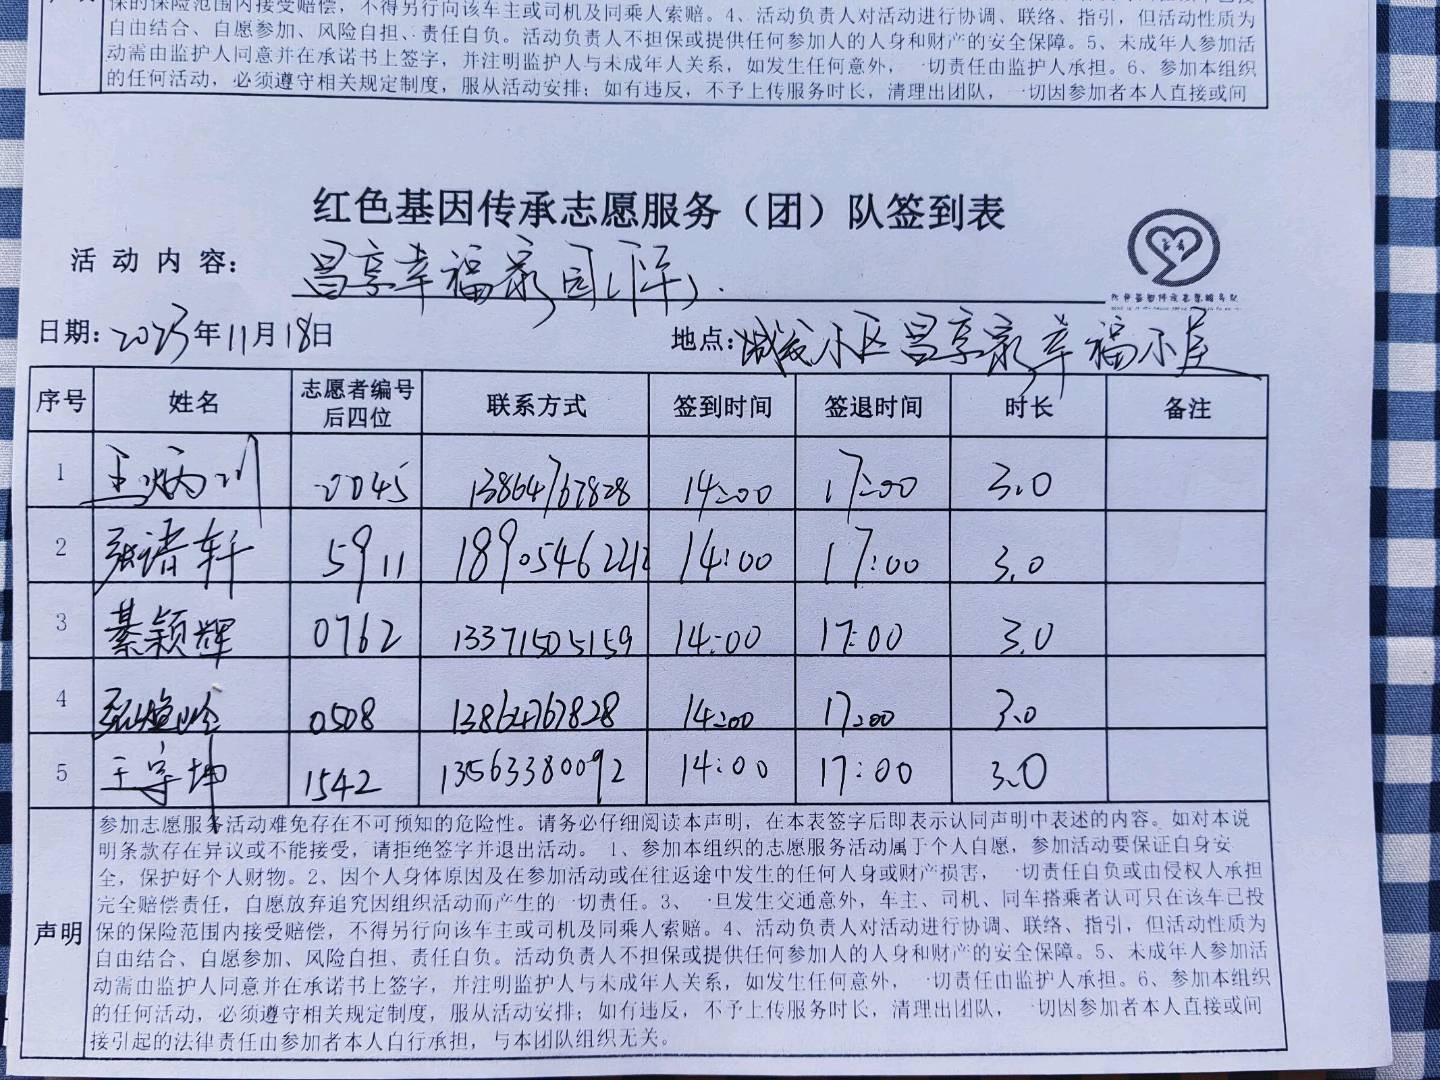 保的保险范围内接受赔偿，不得另行向该车主或司机及同乘人索赔。4、活动负责人对活动进行协调、联络、指引，但活动性质为
自由结合、自愿参加、风险自担、责任自负。活动负责人不担保或提供任何参加人的人身和财产的安全保障。5、未成年人参加活
动需由监护人同意并在承诺书上签字，并注明监护人与未成年人关系，如发生任何意外，一切责任由监护人承担。6、参加本组织
的任何活动，必须遵守相关规定制度，服从活动安排；如有违反，不予上传服务时长，清理出团队，一切因参加者本人直接或间
红色基因传承志愿服务（团）队签到表
活动内容： 昌享幸福家园
日期：2023年11月18日 地点：城发小区昌享家幸福小屋
序号 姓名 志愿者编号后四位 联系方式 签到时间 签退时间 时长 备注
1 王炳川 0045 13864767828 14:00 17:00 3.0
2 张诸轩 5911 18905462212 14:00 17:00 3.0
3 綦颖辉 0762 13371505159 14:00 17:00 3.0
4 0508 13864767828 14:00 17:00 3.0
5 王守坤 1542 13563380092 14:00 17:00 3.0
声明
参加志愿服务活动难免存在不可预知的危险性。请务必仔细阅读本声明，在本表签字后即表示认同声明中表述的内容。如对本说
明条款存在异议或不能接受，请拒绝签字并退出活动。 1、参加本组织的志愿服务活动属于个人自愿，参加活动要保证自身安
全，保护好个人财物。2、因个人身体原因及在参加活动或在往返途中发生的任何人身或财产损害，一切责任自负或由侵权人承担
完全赔偿责任，自愿放弃追究因组织活动而产生的一切责任。3、一旦发生交通意外，车主、司机、同车搭乘者认可只在该车已投
保的保险范围内接受赔偿，不得另行向该车主或司机及同乘人索赔。4、活动负责人对活动进行协调、联络、指引，但活动性质为
自由结合、自愿参加、风险自担、责任自负。活动负责人不担保或提供任何参加人的人身和财产的安全保障。5、未成年人参加活
动需由监护人同意并在承诺书上签字，并注明监护人与未成年人关系，如发生任何意外，一切责任由监护人承担。6、参加本组织
的任何活动，必须遵守相关规定制度，服从活动安排；如有违反，不予上传服务时长，清理出团队，一切因参加者本人直接或间
接引起的法律责任由参加者本人自行承担，与本团队组织无关。